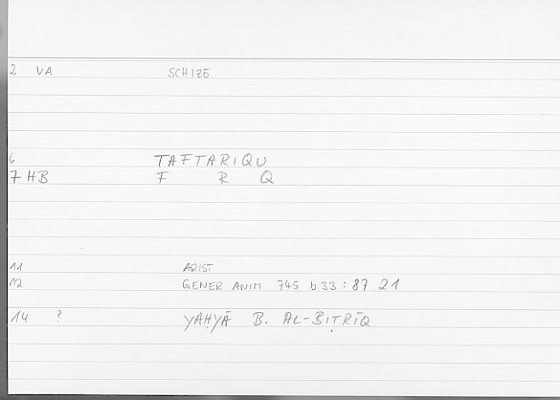 2 VA SCHIZŌ
6 TAFTARIQU
7 HB F R Q
11 ARIST
12 GENER ANIM 745 b 33 : 87 21
14 ? YAḤYĀ B. AL-BIṬRĪQ